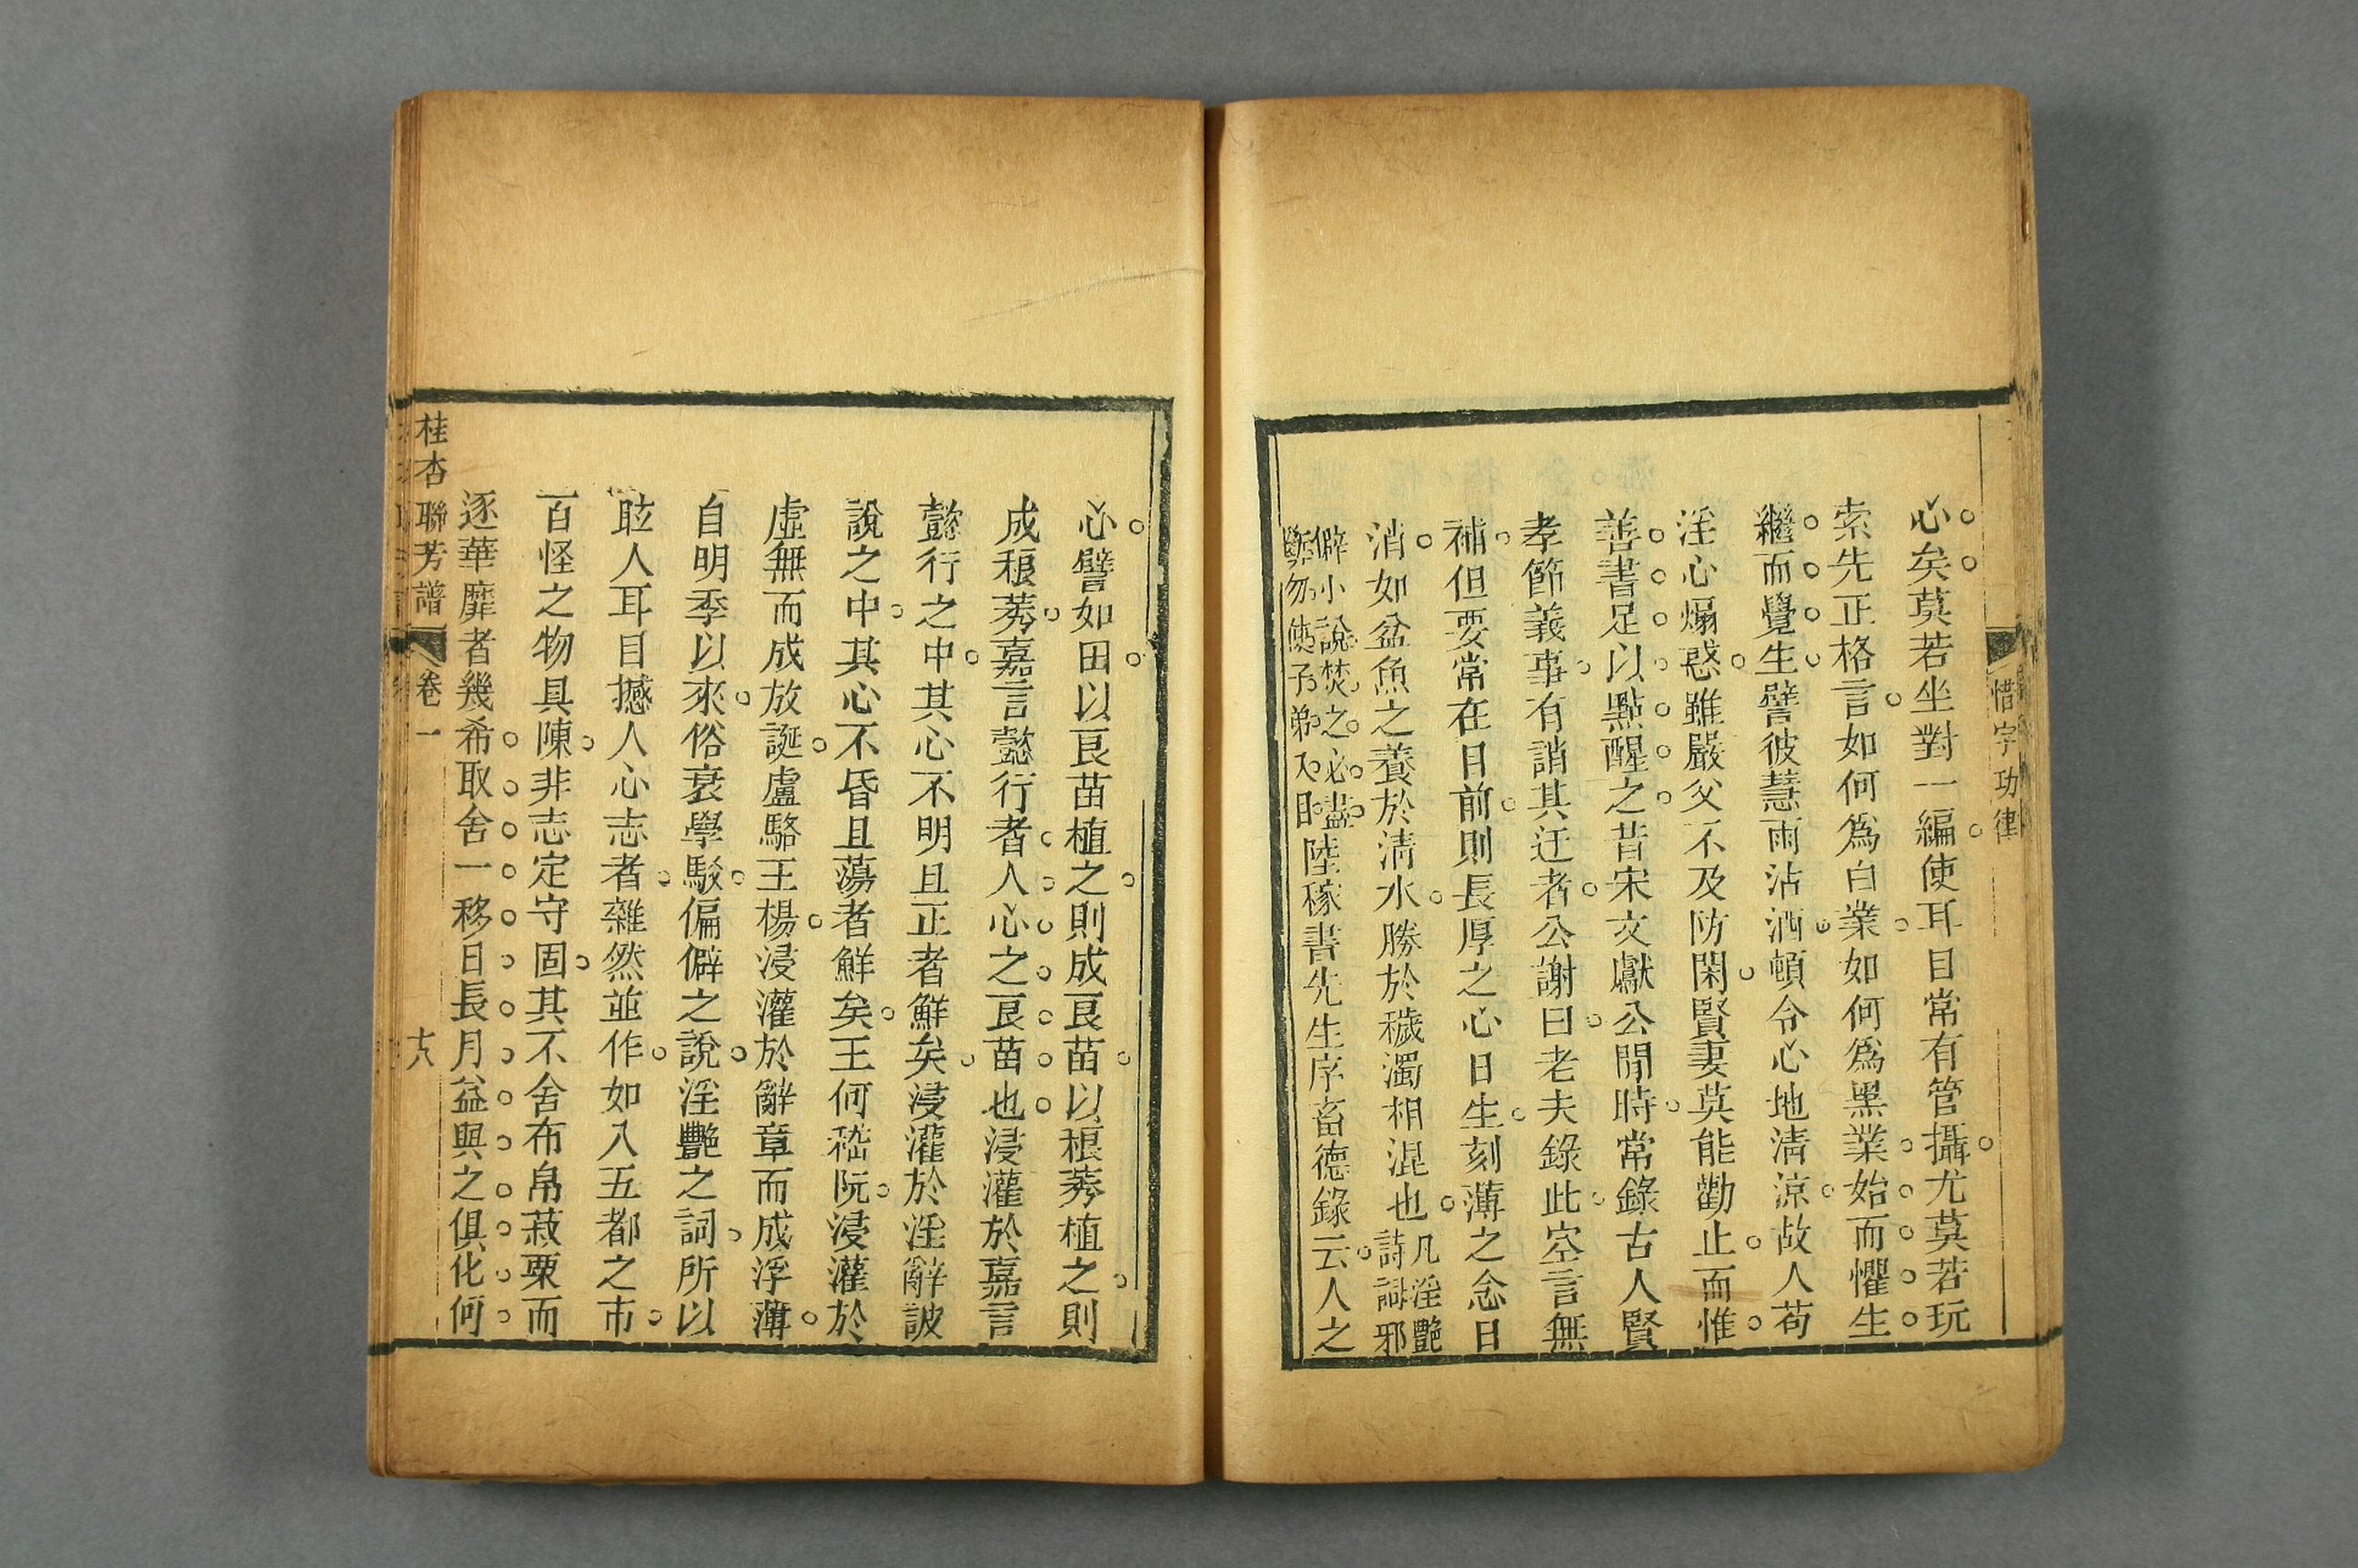 惜字功律
心矣莫若坐對一編使耳目常有管攝尤莫若玩
索先正格言如何為白業如何為黑業始而懼生
繼而覺生譬彼慧雨沾洒頓令心地清涼故人苟
淫心煽惑雖嚴父不及防閑賢妻莫能勸止而惟
善書足以點醒之昔宋文獻公閒時常錄古人賢
孝節義事有誚其迂者公謝曰老夫錄此空言無
補但要常在目前則長厚之心日生刻薄之念日
消如盆魚之養於清水勝於穢濁相混也凡淫艷
詩詞邪
僻小說焚之必盡
弊勿使子弟入目陸稼書先生序畜德錄云人之
心譬如田以良苗植之則成良苗以稂莠植之則
成稂莠嘉言懿行者人心之良苗也浸灌於嘉言
懿行之中其心不明且正者鮮矣浸灌於淫辭詖
說之中其心不昏且蕩者鮮矣王何嵇阮浸灌於
虛無而成放誕盧駱王楊浸灌於辭章而成浮薄
自明季以來俗衰學駁偏僻之說淫艷之詞所以
眩人耳目撼人心志者雜然並作如入五都之市
百怪之物具陳非志定守固其不舍布帛菽粟而
逐華靡者幾希取舍一移日長月益與之俱化何
桂杏聯芳譜
卷一
十八